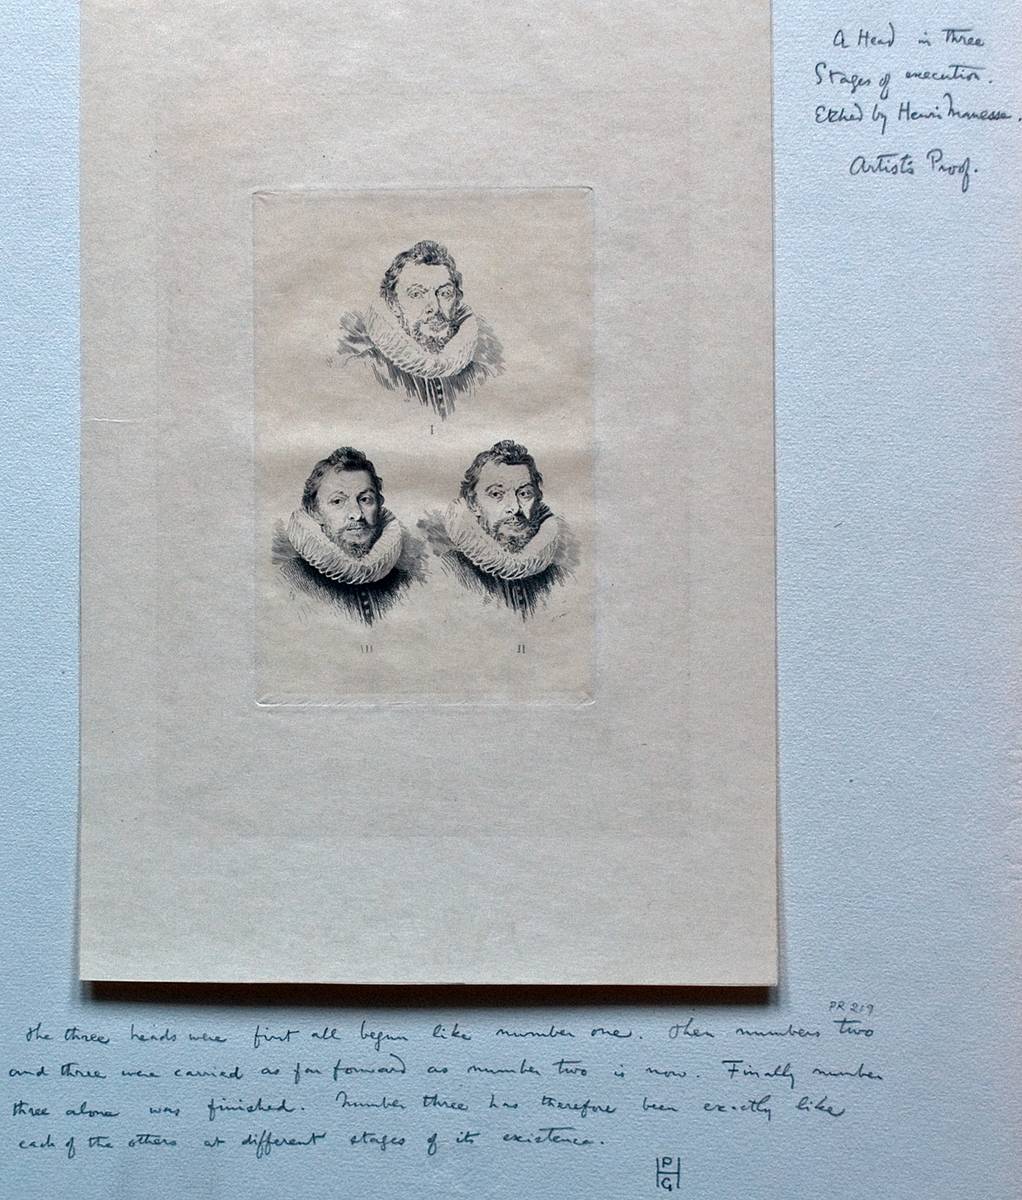 A Head in Three
Stages of execution.
Etched by Henri Manesse.
Artist's Proof.
I
III
II
PR 219
The three heads were first all begun like number one. Then numbers two
and three were carried as far forward as number two is now. Finally number
three alone was finished. Number three has therefore been exactly like
each of the others at different stages of its existence.
PHG